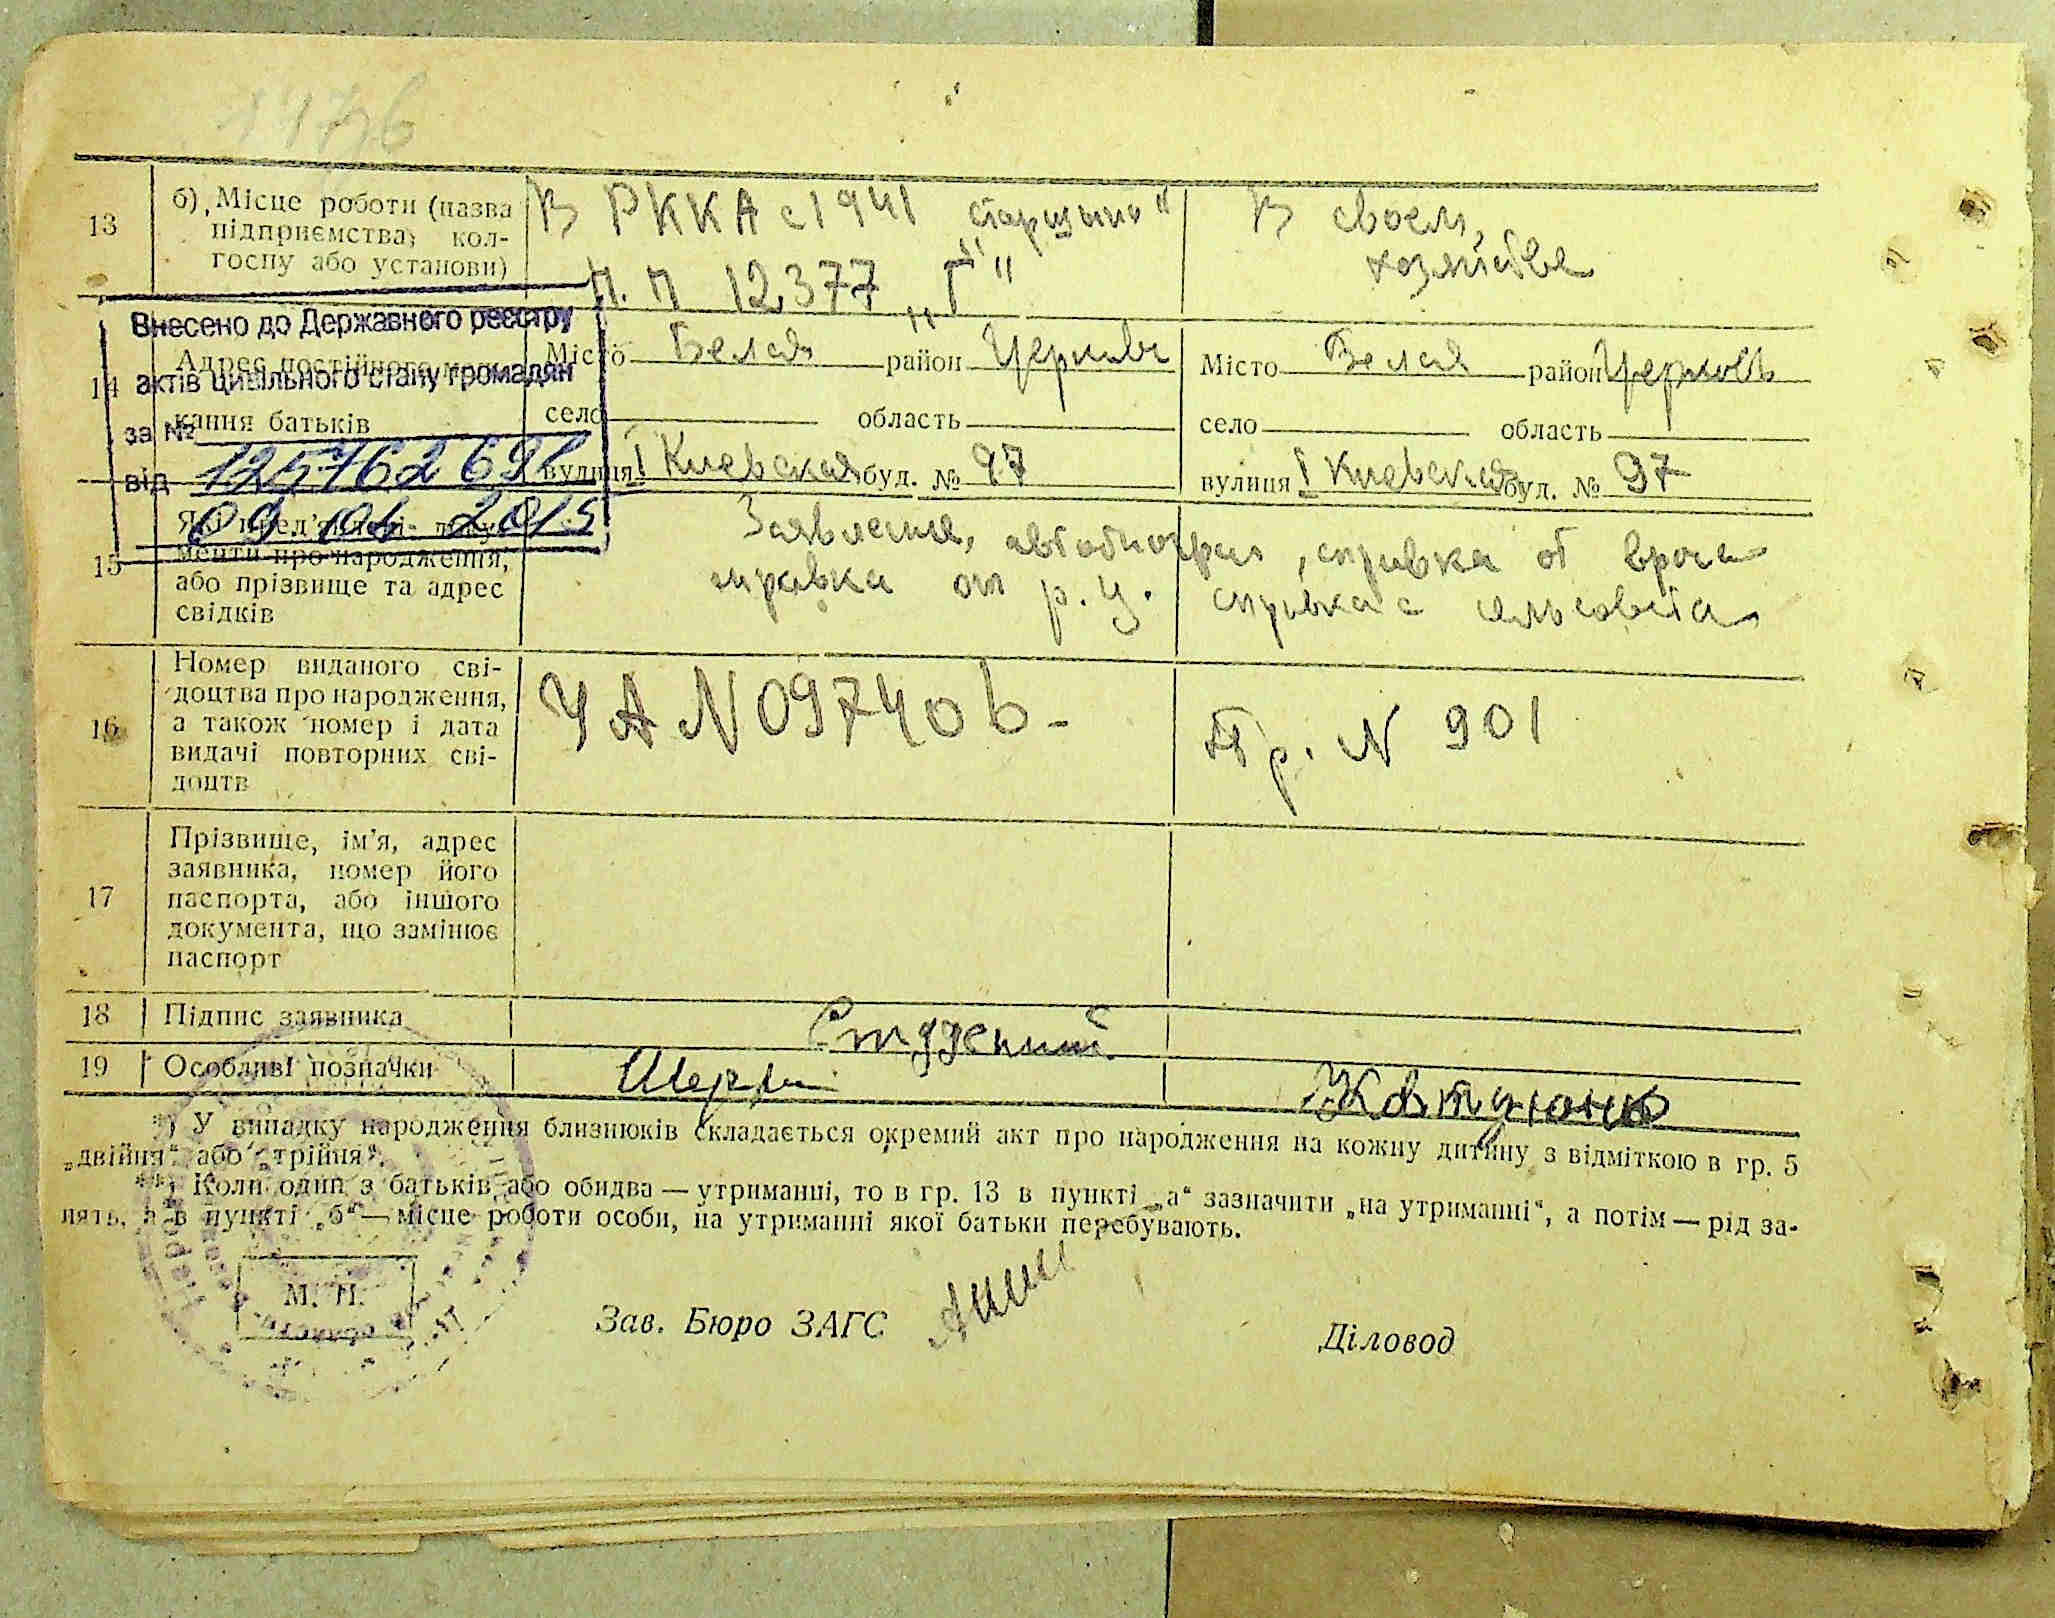 1176
13
б) Місце роботи (назва
підприємства, кол-
госпу або установи)
В РККА с 1941 „старшина"
п. п 12377 „Г"
В своем
хозяйстве
Внесено до Державного реєстру
актів цивільного стану громадян
за №
125762691
від 09 06 2015
14
Адрес постійного
кання батьків
Місто Белая район Церковь
село область
вулиця I Киевская буд. № 97
Місто Белая район Церковь
село область
вулиця I Киевская буд. № 97
15
Які пред'явлені доку-
менти про народження,
або прізвище та адрес
свідків
Заявление, автобиограф, справка от врача
справка от р. у. справка с сельсовета
16
Номер виданого сві-
доцтва про народження,
а також номер і дата
видачі повторних сві-
доцтв
УА N 097406-
Пр. N 901
17
Прізвище, ім'я, адрес
заявника, номер його
паспорта, або іншого
документа, що замінює
паспорт
18
Підпис заявника
19
Особливі позначки
*) У випадку народження близнюків складається окремий акт про народження на кожну дитину з відміткою в гр. 5
„двійня" або „трійня".
**) Коли один з батьків, або обидва — утриманні, то в гр. 13 в пункті „а" зазначити „на утриманні", а потім — рід за-
нять, а в пункті „б" — місце роботи особи, на утриманні якої батьки перебувають.
М. П.
Зав. Бюро ЗАГС
Діловод